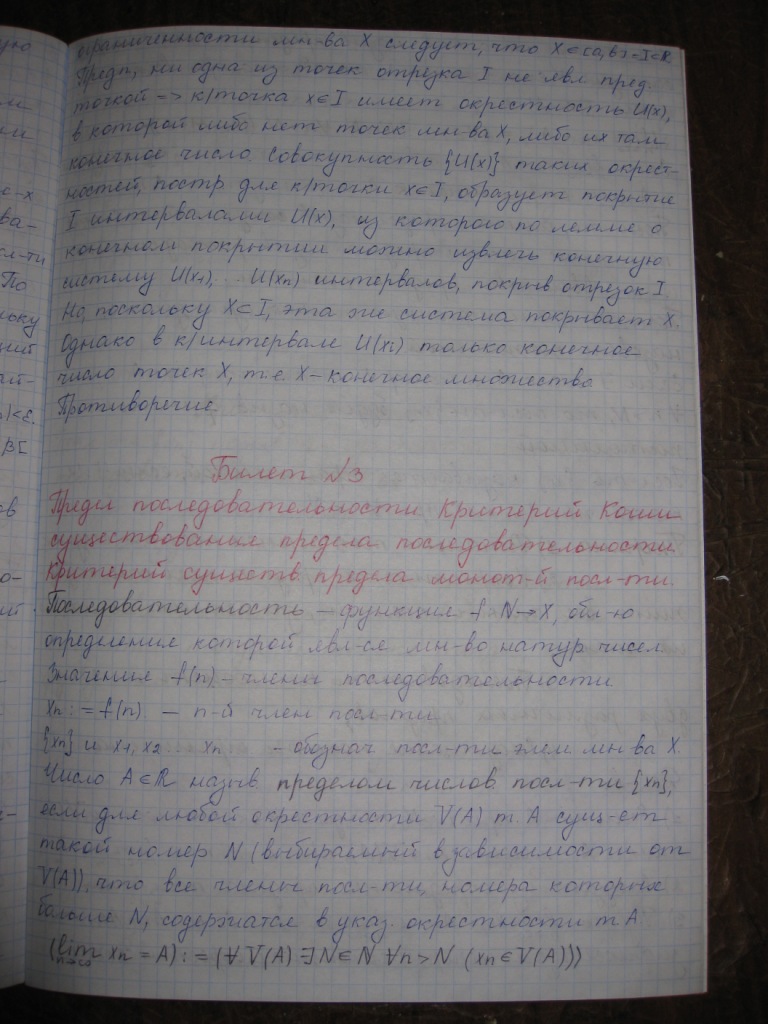 ую
ограниченности мн-ва X следует, что X ∈ [a, b] = I ∈ R
Предп, ни одна из точек отрезка I не явл пред.
точкой => к/точка x∈I имеет окрестность U(x),
в которой либо нет точек мн-ва X, либо их там
конечное число. Совокупность {U(x)} таких окрест-
ностей, постр для к/точки x∈I, образует покрытие
I интервалами U(x), из которого по лемме о
конечном покрытии можно извлечь конечную
систему U(x₁), .. U(xn) интервалов, покрыв отрезок I
Но, поскольку X⊂I, эта же система покрывает X.
Однако в к/интервале U(xi) только конечное
число точек X, т.е. X – конечное множество
Противоречие.
Билет №3
Предел последовательности Критерий Коши
существования предела последовательности
Критерий существ предела монот-й посл-ти.
Последовательность – функция f N→X, обл-ю
определения которой явл-ся мн-во натур чисел.
Значения f(n) – члены последовательности
xn := f(n). – n-й член посл-ти
{xn} и x₁, x₂... xn – обознач посл-ти элем мн-ва X.
Число A∈R назыв пределом числов посл-ти {xn},
если для любой окрестности V(A) т A сущ-ет
такой номер N (выбираемый в зависимости от
V(A)), что все члены посл-ти, номера которых
больше N, содержатся в указ. окрестности т A
(lim xn = A) := (∀ V(A) ∃N∈N ∀n>N (xn∈V(A)))
n→∞